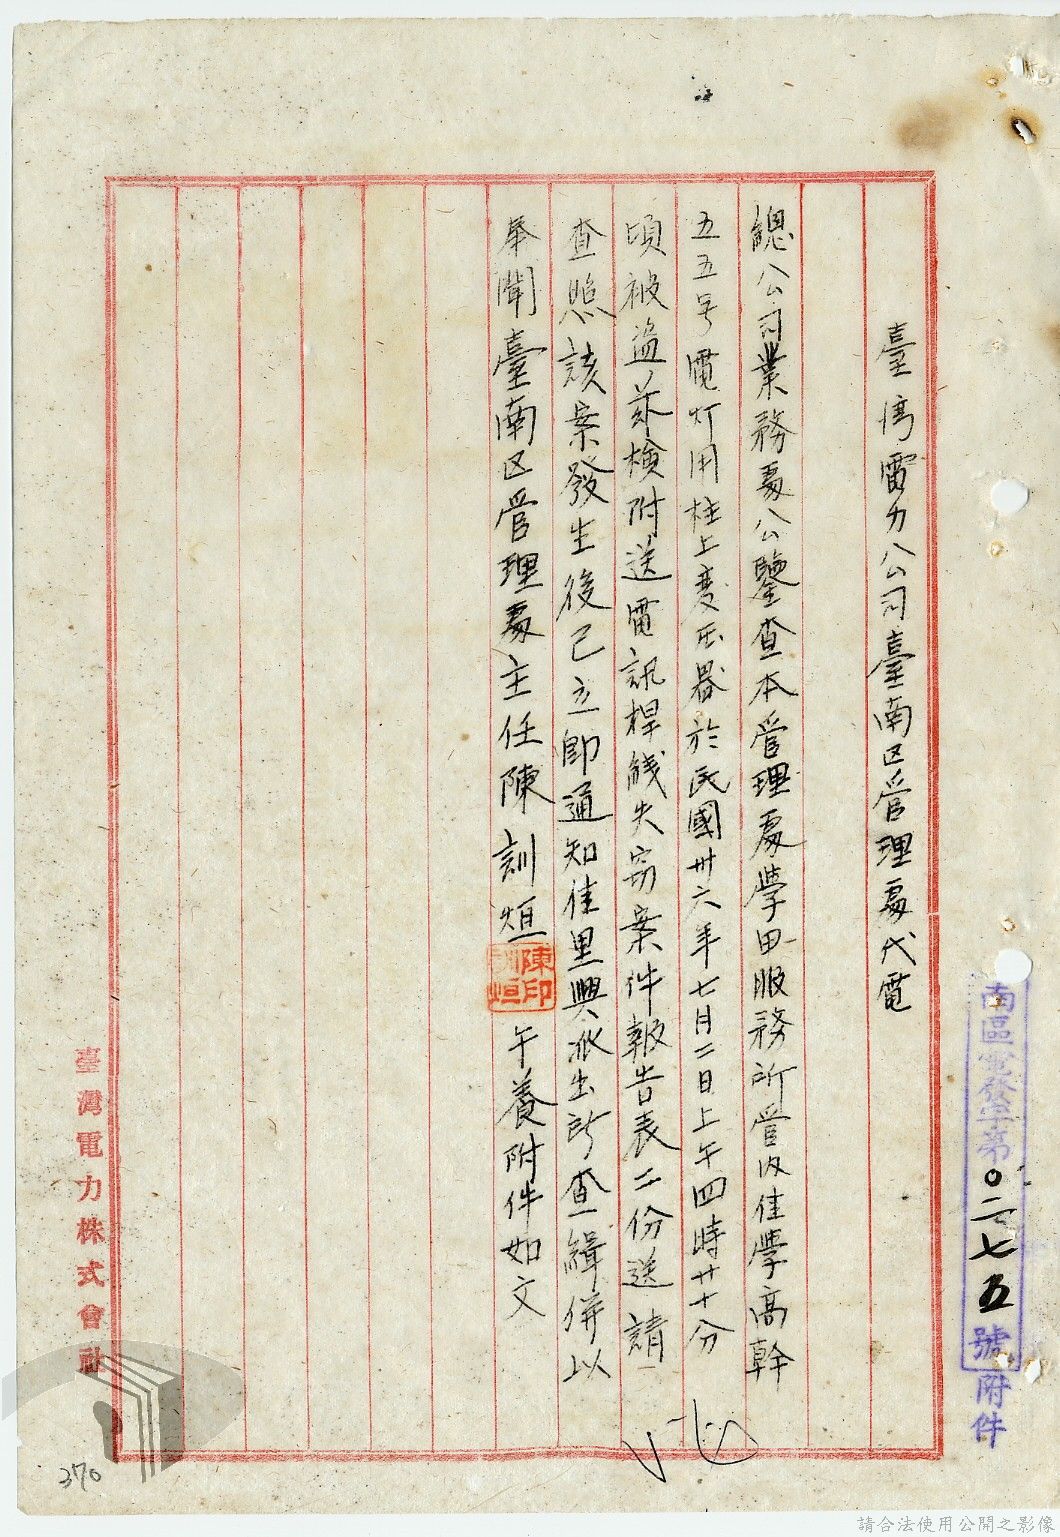 南區電發字第〇二七五號附件
臺湾電力公司臺南区管理處代電
總公司業務處公鑒查本管理處學甲服務所管内佳學高幹
五五号電灯用柱上変圧器於民國卅六年七月二日上午四時廿十分
頃被盗茲検附送電訊桿綫失窃案件報告表二份送請
查照該案發生後已立即通知佳里興派出所查緝併以
奉聞臺南区管理處主任陳訓烜
陳印訓烜
午養附件如文
臺灣電力株式會社
370
請合法使用公開之影像